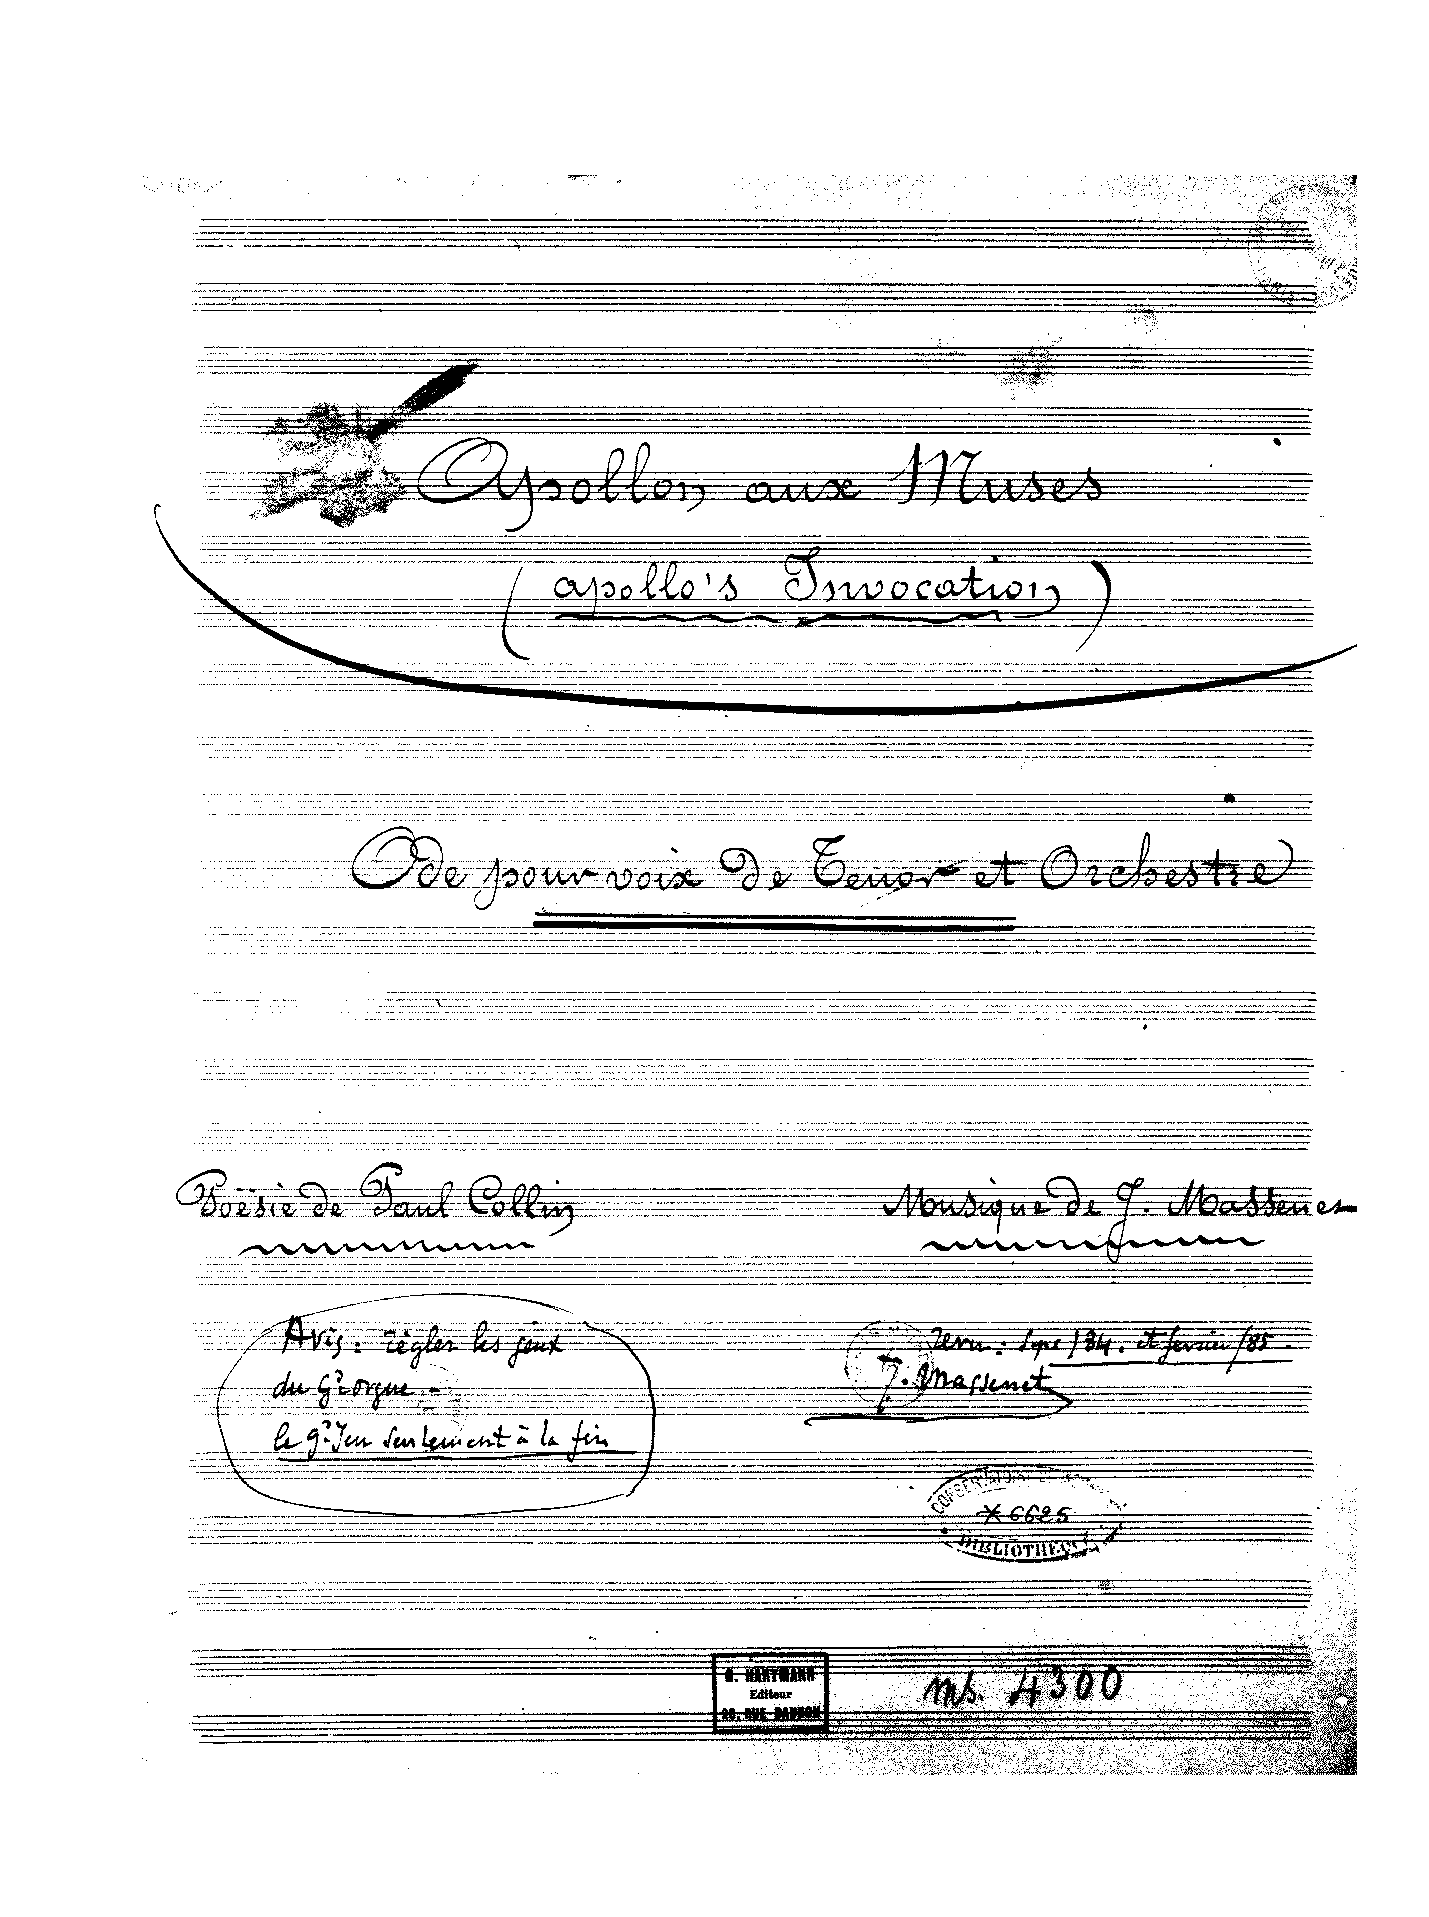 Apollon aux Muses
(apollo's Invocation)
Ode pour voix de Tenor et Orchestre
Poësie de Paul Collin
Musique de J. Massenet
Avis: règler les jeux
du gd orgue -
le gd Jeu seulement à la fin
revu: Sept /84. et fevrier /85.
J. Massenet
CONSERVATOIRE
* 6625
BIBLIOTHEQUE
G. HARTMANN
Editeur
20, RUE DAUNOU
ms. 4300